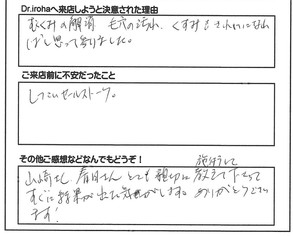 Dr.irohaへ来店しようと決意された理由
むくみの解消 毛穴の汚れ、くすみもきれいになれ
ばと思って参りました。
ご来店前に不安だったこと
しつこいセールストーク。
その他ご感想などなんでもどうぞ！
山崎さん 春日さん とても親切に施術して教えて下さって
すぐに結果が出た気がします。ありがとうござい
ます！